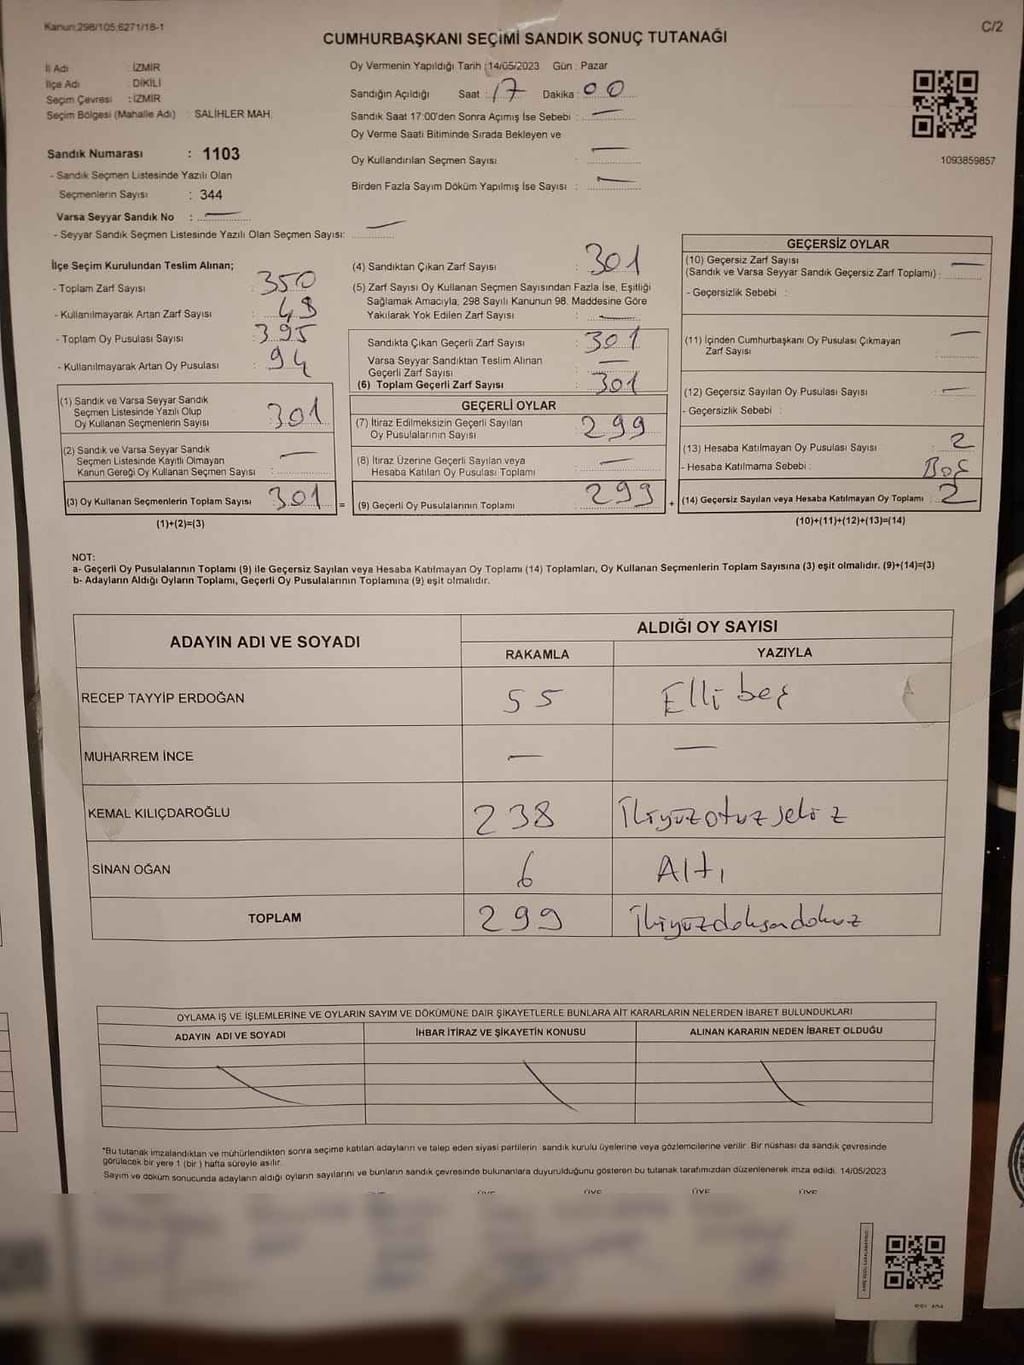 Kanun:298/105;6271/18-1
C/2
CUMHURBAŞKANI SEÇİMİ SANDIK SONUÇ TUTANAĞI
İl Adı : İZMİR
İlçe Adı : DİKİLİ
Seçim Çevresi : İZMİR
Seçim Bölgesi (Mahalle Adı) : SALİHLER MAH.
Sandık Numarası : 1103
- Sandık Seçmen Listesinde Yazılı Olan
Seçmenlerin Sayısı : 344
Varsa Seyyar Sandık No : —
- Seyyar Sandık Seçmen Listesinde Yazılı Olan Seçmen Sayısı: —
Oy Vermenin Yapıldığı Tarih : 14/05/2023 Gün : Pazar
Sandığın Açıldığı Saat : 17 Dakika : 00
Sandık Saat 17:00'den Sonra Açımış İse Sebebi : —
Oy Verme Saati Bitiminde Sırada Bekleyen ve
Oy Kullandırılan Seçmen Sayısı : —
Birden Fazla Sayım Döküm Yapılmış İse Sayısı : —
1093859857
İlçe Seçim Kurulundan Teslim Alınan;
- Toplam Zarf Sayısı : 350
- Kullanılmayarak Artan Zarf Sayısı : 48
- Toplam Oy Pusulası Sayısı : 395
- Kullanılmayarak Artan Oy Pusulası : 94
(1) Sandık ve Varsa Seyyar Sandık
Seçmen Listesinde Yazılı Olup
Oy Kullanan Seçmenlerin Sayısı : 301
(2) Sandık ve Varsa Seyyar Sandık
Seçmen Listesinde Kayıtlı Olmayan
Kanun Gereği Oy Kullanan Seçmen Sayısı : —
(3) Oy Kullanan Seçmenlerin Toplam Sayısı : 301 =
(1)+(2)=(3)
(4) Sandıktan Çıkan Zarf Sayısı : 301
(5) Zarf Sayısı Oy Kullanan Seçmen Sayısından Fazla İse, Eşitliği
Sağlamak Amacıyla, 298 Sayılı Kanunun 98. Maddesine Göre
Yakılarak Yok Edilen Zarf Sayısı : —
Sandıkta Çıkan Geçerli Zarf Sayısı : 301
Varsa Seyyar Sandıktan Teslim Alınan
Geçerli Zarf Sayısı : —
(6) Toplam Geçerli Zarf Sayısı : 301
GEÇERLİ OYLAR
(7) İtiraz Edilmeksizin Geçerli Sayılan
Oy Pusulalarının Sayısı : 299
(8) İtiraz Üzerine Geçerli Sayılan veya
Hesaba Katılan Oy Pusulası Toplamı : —
(9) Geçerli Oy Pusulalarının Toplamı : 299 +
GEÇERSİZ OYLAR
(10) Geçersiz Zarf Sayısı
(Sandık ve Varsa Seyyar Sandık Geçersiz Zarf Toplamı) : —
- Geçersizlik Sebebi :
(11) İçinden Cumhurbaşkanı Oy Pusulası Çıkmayan
Zarf Sayısı : —
(12) Geçersiz Sayılan Oy Pusulası Sayısı : —
- Geçersizlik Sebebi :
(13) Hesaba Katılmayan Oy Pusulası Sayısı : 2
- Hesaba Katılmama Sebebi : Boş
(14) Geçersiz Sayılan veya Hesaba Katılmayan Oy Toplamı : 2
(10)+(11)+(12)+(13)=(14)
NOT:
a- Geçerli Oy Pusulalarının Toplamı (9) ile Geçersiz Sayılan veya Hesaba Katılmayan Oy Toplamı (14) Toplamları, Oy Kullanan Seçmenlerin Toplam Sayısına (3) eşit olmalıdır. (9)+(14)=(3)
b- Adayların Aldığı Oyların Toplamı, Geçerli Oy Pusulalarının Toplamına (9) eşit olmalıdır.
ADAYIN ADI VE SOYADI
ALDIĞI OY SAYISI
RAKAMLA YAZIYLA
RECEP TAYYİP ERDOĞAN 55 Elli beş
MUHARREM İNCE — —
KEMAL KILIÇDAROĞLU 238 İkiyüzotuzsekiz
SİNAN OĞAN 6 Altı
TOPLAM 299 İkiyüzdoksandokuz
OYLAMA İŞ VE İŞLEMLERİNE VE OYLARIN SAYIM VE DÖKÜMÜNE DAİR ŞİKAYETLERLE BUNLARA AİT KARARLARIN NELERDEN İBARET BULUNDUKLARI
ADAYIN ADI VE SOYADI İHBAR İTİRAZ VE ŞİKAYETİN KONUSU ALINAN KARARIN NEDEN İBARET OLDUĞU
*Bu tutanak imzalandıktan ve mühürlendikten sonra seçime katılan adayların ve talep eden siyasi partilerin sandık kurulu üyelerine veya gözlemcilerine verilir. Bir nüshası da sandık çevresinde
görülecek bir yere 1 (bir ) hafta süreyle asılır.
Sayım ve döküm sonucunda adayların aldığı oyların sayılarını ve bunların sandık çevresinde bulunanlara duyurulduğunu gösteren bu tutanak tarafımızdan düzenlenerek imza edildi. 14/05/2023
ÜYE ÜYE ÜYE ÜYE